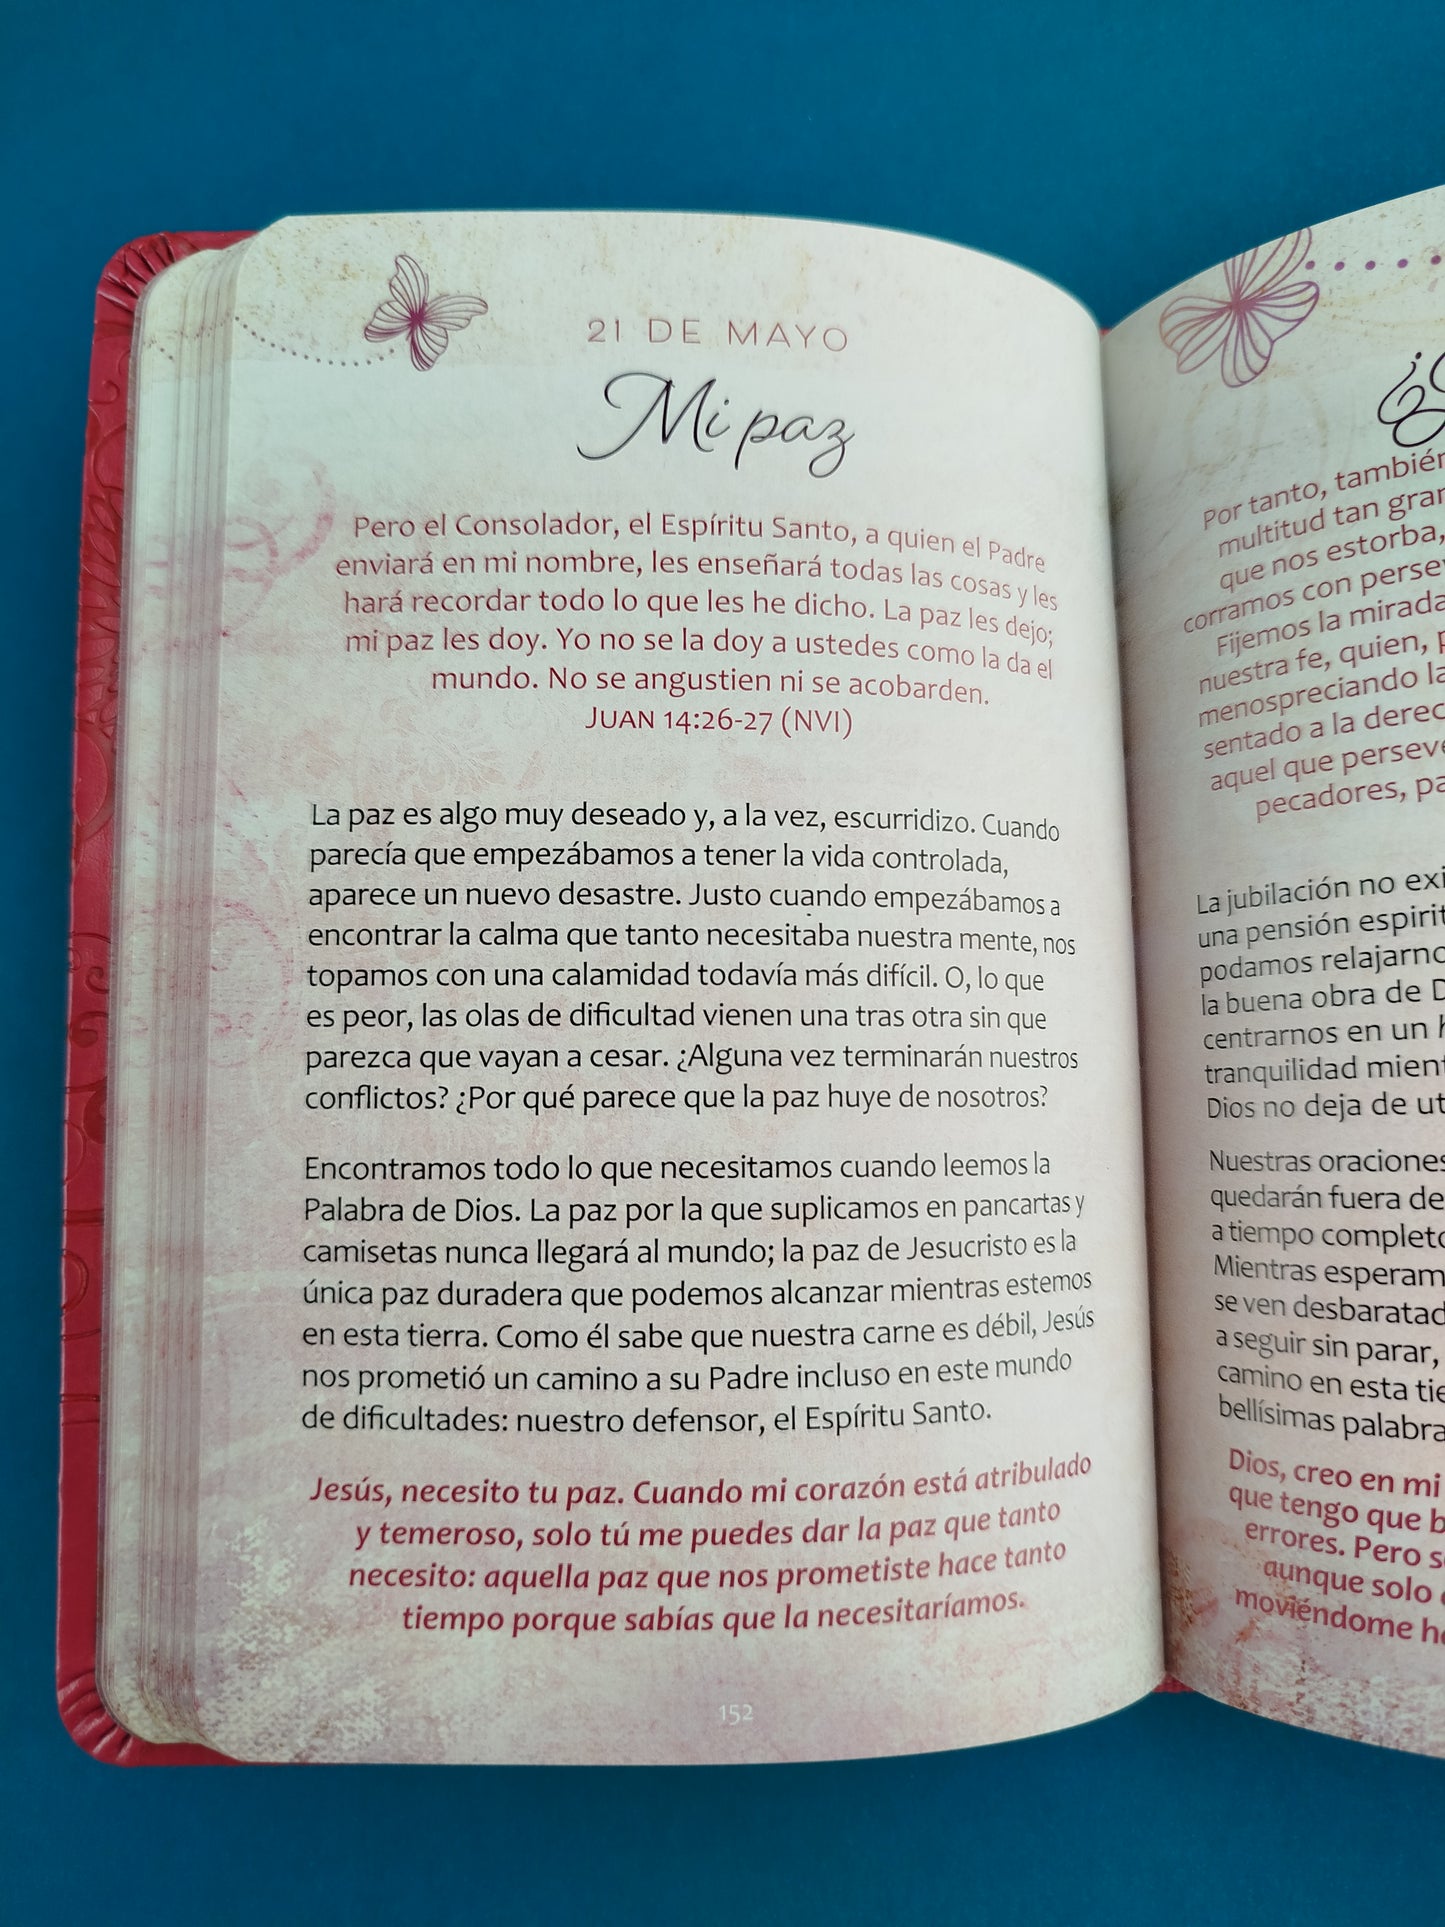 21 DE MAYO
Mi paz
Pero el Consolador, el Espíritu Santo, a quien el Padre
enviará en mi nombre, les enseñará todas las cosas y les
hará recordar todo lo que les he dicho. La paz les dejo;
mi paz les doy. Yo no se la doy a ustedes como la da el
mundo. No se angustien ni se acobarden.
JUAN 14:26-27 (NVI)
La paz es algo muy deseado y, a la vez, escurridizo. Cuando
parecía que empezábamos a tener la vida controlada,
aparece un nuevo desastre. Justo cuando empezábamos a
encontrar la calma que tanto necesitaba nuestra mente, nos
topamos con una calamidad todavía más difícil. O, lo que
es peor, las olas de dificultad vienen una tras otra sin que
parezca que vayan a cesar. ¿Alguna vez terminarán nuestros
conflictos? ¿Por qué parece que la paz huye de nosotros?
Encontramos todo lo que necesitamos cuando leemos la
Palabra de Dios. La paz por la que suplicamos en pancartas y
camisetas nunca llegará al mundo; la paz de Jesucristo es la
única paz duradera que podemos alcanzar mientras estemos
en esta tierra. Como él sabe que nuestra carne es débil, Jesús
nos prometió un camino a su Padre incluso en este mundo
de dificultades: nuestro defensor, el Espíritu Santo.
Jesús, necesito tu paz. Cuando mi corazón está atribulado
y temeroso, solo tú me puedes dar la paz que tanto
necesito: aquella paz que nos prometiste hace tanto
tiempo porque sabías que la necesitaríamos.
152
Por tanto, también
multitud tan gran
que nos estorba,
corramos con perse
Fijemos la mirada
nuestra fe, quien,
menospreciando la
sentado a la derec
aquel que perseve
pecadores, pa
La jubilación no exi
una pensión espirit
podamos relajarno
la buena obra de D
centrarnos en un
tranquilidad mient
Dios no deja de ut
Nuestras oraciones
quedarán fuera de
a tiempo completo
Mientras esperam
se ven desbaratad
a seguir sin parar,
camino en esta tie
bellísimas palabra
Dios, creo en mi
que tengo que b
errores. Pero s
aunque solo
moviéndome h